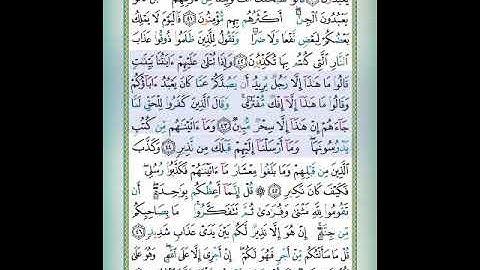 يَعْبُدُونَ ٱلْجِنَّ ۖ أَكْثَرُهُم بِهِم مُّؤْمِنُونَ ٤١ فَٱلْيَوْمَ لَا يَمْلِكُ
بَعْضُكُمْ لِبَعْضٍ نَّفْعًا وَلَا ضَرًّا وَنَقُولُ لِلَّذِينَ ظَلَمُوا۟ ذُوقُوا۟ عَذَابَ
ٱلنَّارِ ٱلَّتِى كُنتُم بِهَا تُكَذِّبُونَ ٤٢ وَإِذَا تُتْلَىٰ عَلَيْهِمْ ءَايَـٰتُنَا بَيِّنَـٰتٍ
قَالُوا۟ مَا هَـٰذَآ إِلَّا رَجُلٌ يُرِيدُ أَن يَصُدَّكُمْ عَمَّا كَانَ يَعْبُدُ ءَابَآؤُكُمْ
وَقَالُوا۟ مَا هَـٰذَآ إِلَّآ إِفْكٌ مُّفْتَرًى ۚ وَقَالَ ٱلَّذِينَ كَفَرُوا۟ لِلْحَقِّ لَمَّا
جَآءَهُمْ إِنْ هَـٰذَآ إِلَّا سِحْرٌ مُّبِينٌ ٤٣ وَمَآ ءَاتَيْنَـٰهُم مِّن كُتُبٍ
يَدْرُسُونَهَا ۖ وَمَآ أَرْسَلْنَآ إِلَيْهِمْ قَبْلَكَ مِن نَّذِيرٍ ٤٤ وَكَذَّبَ
ٱلَّذِينَ مِن قَبْلِهِمْ وَمَا بَلَغُوا۟ مِعْشَارَ مَآ ءَاتَيْنَـٰهُمْ فَكَذَّبُوا۟ رُسُلِى ۖ
فَكَيْفَ كَانَ نَكِيرِ ٤٥ ۞ قُلْ إِنَّمَآ أَعِظُكُم بِوَٰحِدَةٍ ۖ أَن
تَقُومُوا۟ لِلَّهِ مَثْنَىٰ وَفُرَٰدَىٰ ثُمَّ تَتَفَكَّرُوا۟ ۚ مَا بِصَاحِبِكُم
مِّن جِنَّةٍ ۚ إِنْ هُوَ إِلَّا نَذِيرٌ لَّكُم بَيْنَ يَدَىْ عَذَابٍ شَدِيدٍ ٤٦
قُلْ مَا سَأَلْتُكُم مِّنْ أَجْرٍ فَهُوَ لَكُمْ ۖ إِنْ أَجْرِىَ إِلَّا عَلَى ٱللَّهِ ۖ وَهُوَ عَلَىٰ